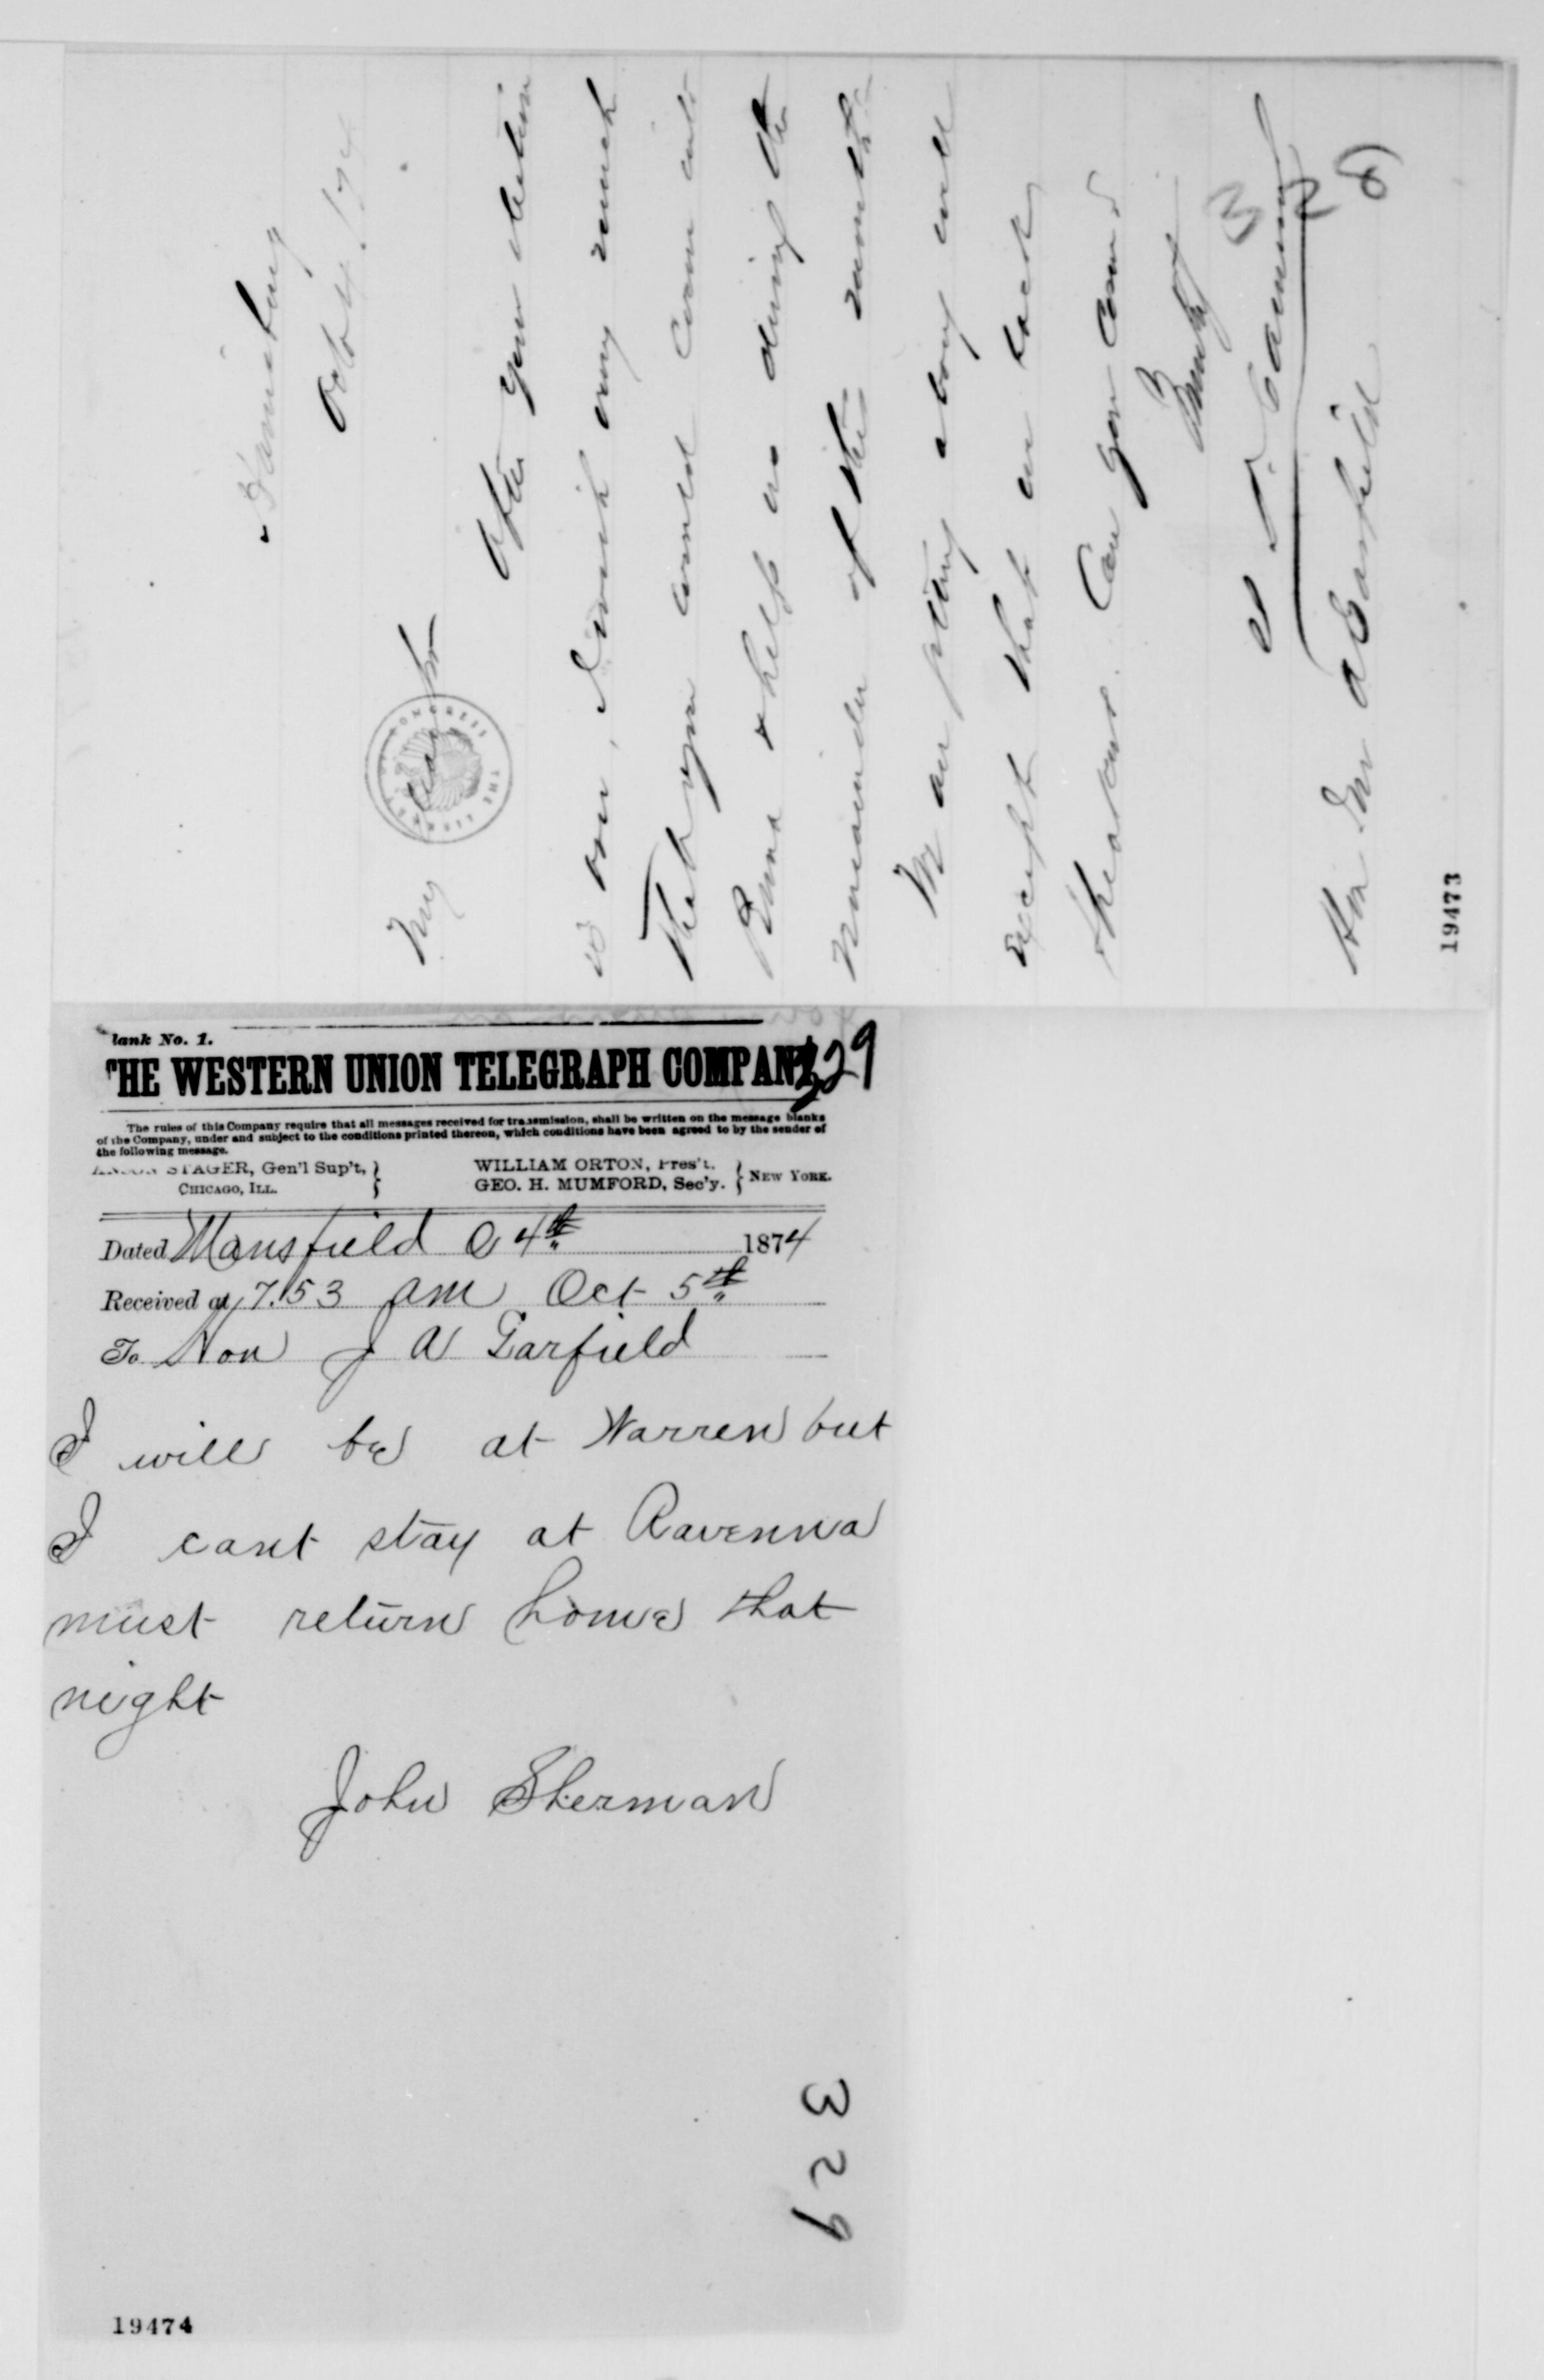 Harrisburg
Octob 4. 1874
My dear Sir
After your election
is over, I wish very much
that you would come into
Penna & help us during the
remainder of the month.
We are getting along well
except that we lack
speakers. Can you come?
Truly
Hon Jas A Garfield
328
19473
THE LIBRARY OF CONGRESS
lank No. 1.
THE WESTERN UNION TELEGRAPH COMPANY
329
The rules of this Company require that all messages received for transmission, shall be written on the message blanks
of the Company, under and subject to the conditions printed thereon, which conditions have been agreed to by the sender of
the following message.
ANSON STAGER, Gen'l Sup't,
CHICAGO, ILL.
WILLIAM ORTON, Pres't.
GEO. H. MUMFORD, Sec'y.
NEW YORK.
Dated Mansfield O 4th 1874
Received at 7.53 am Oct 5th
To Hon J A Garfield
I will be at Warren but
I cant stay at Ravenna
must return home that
night
John Sherman
329
19474